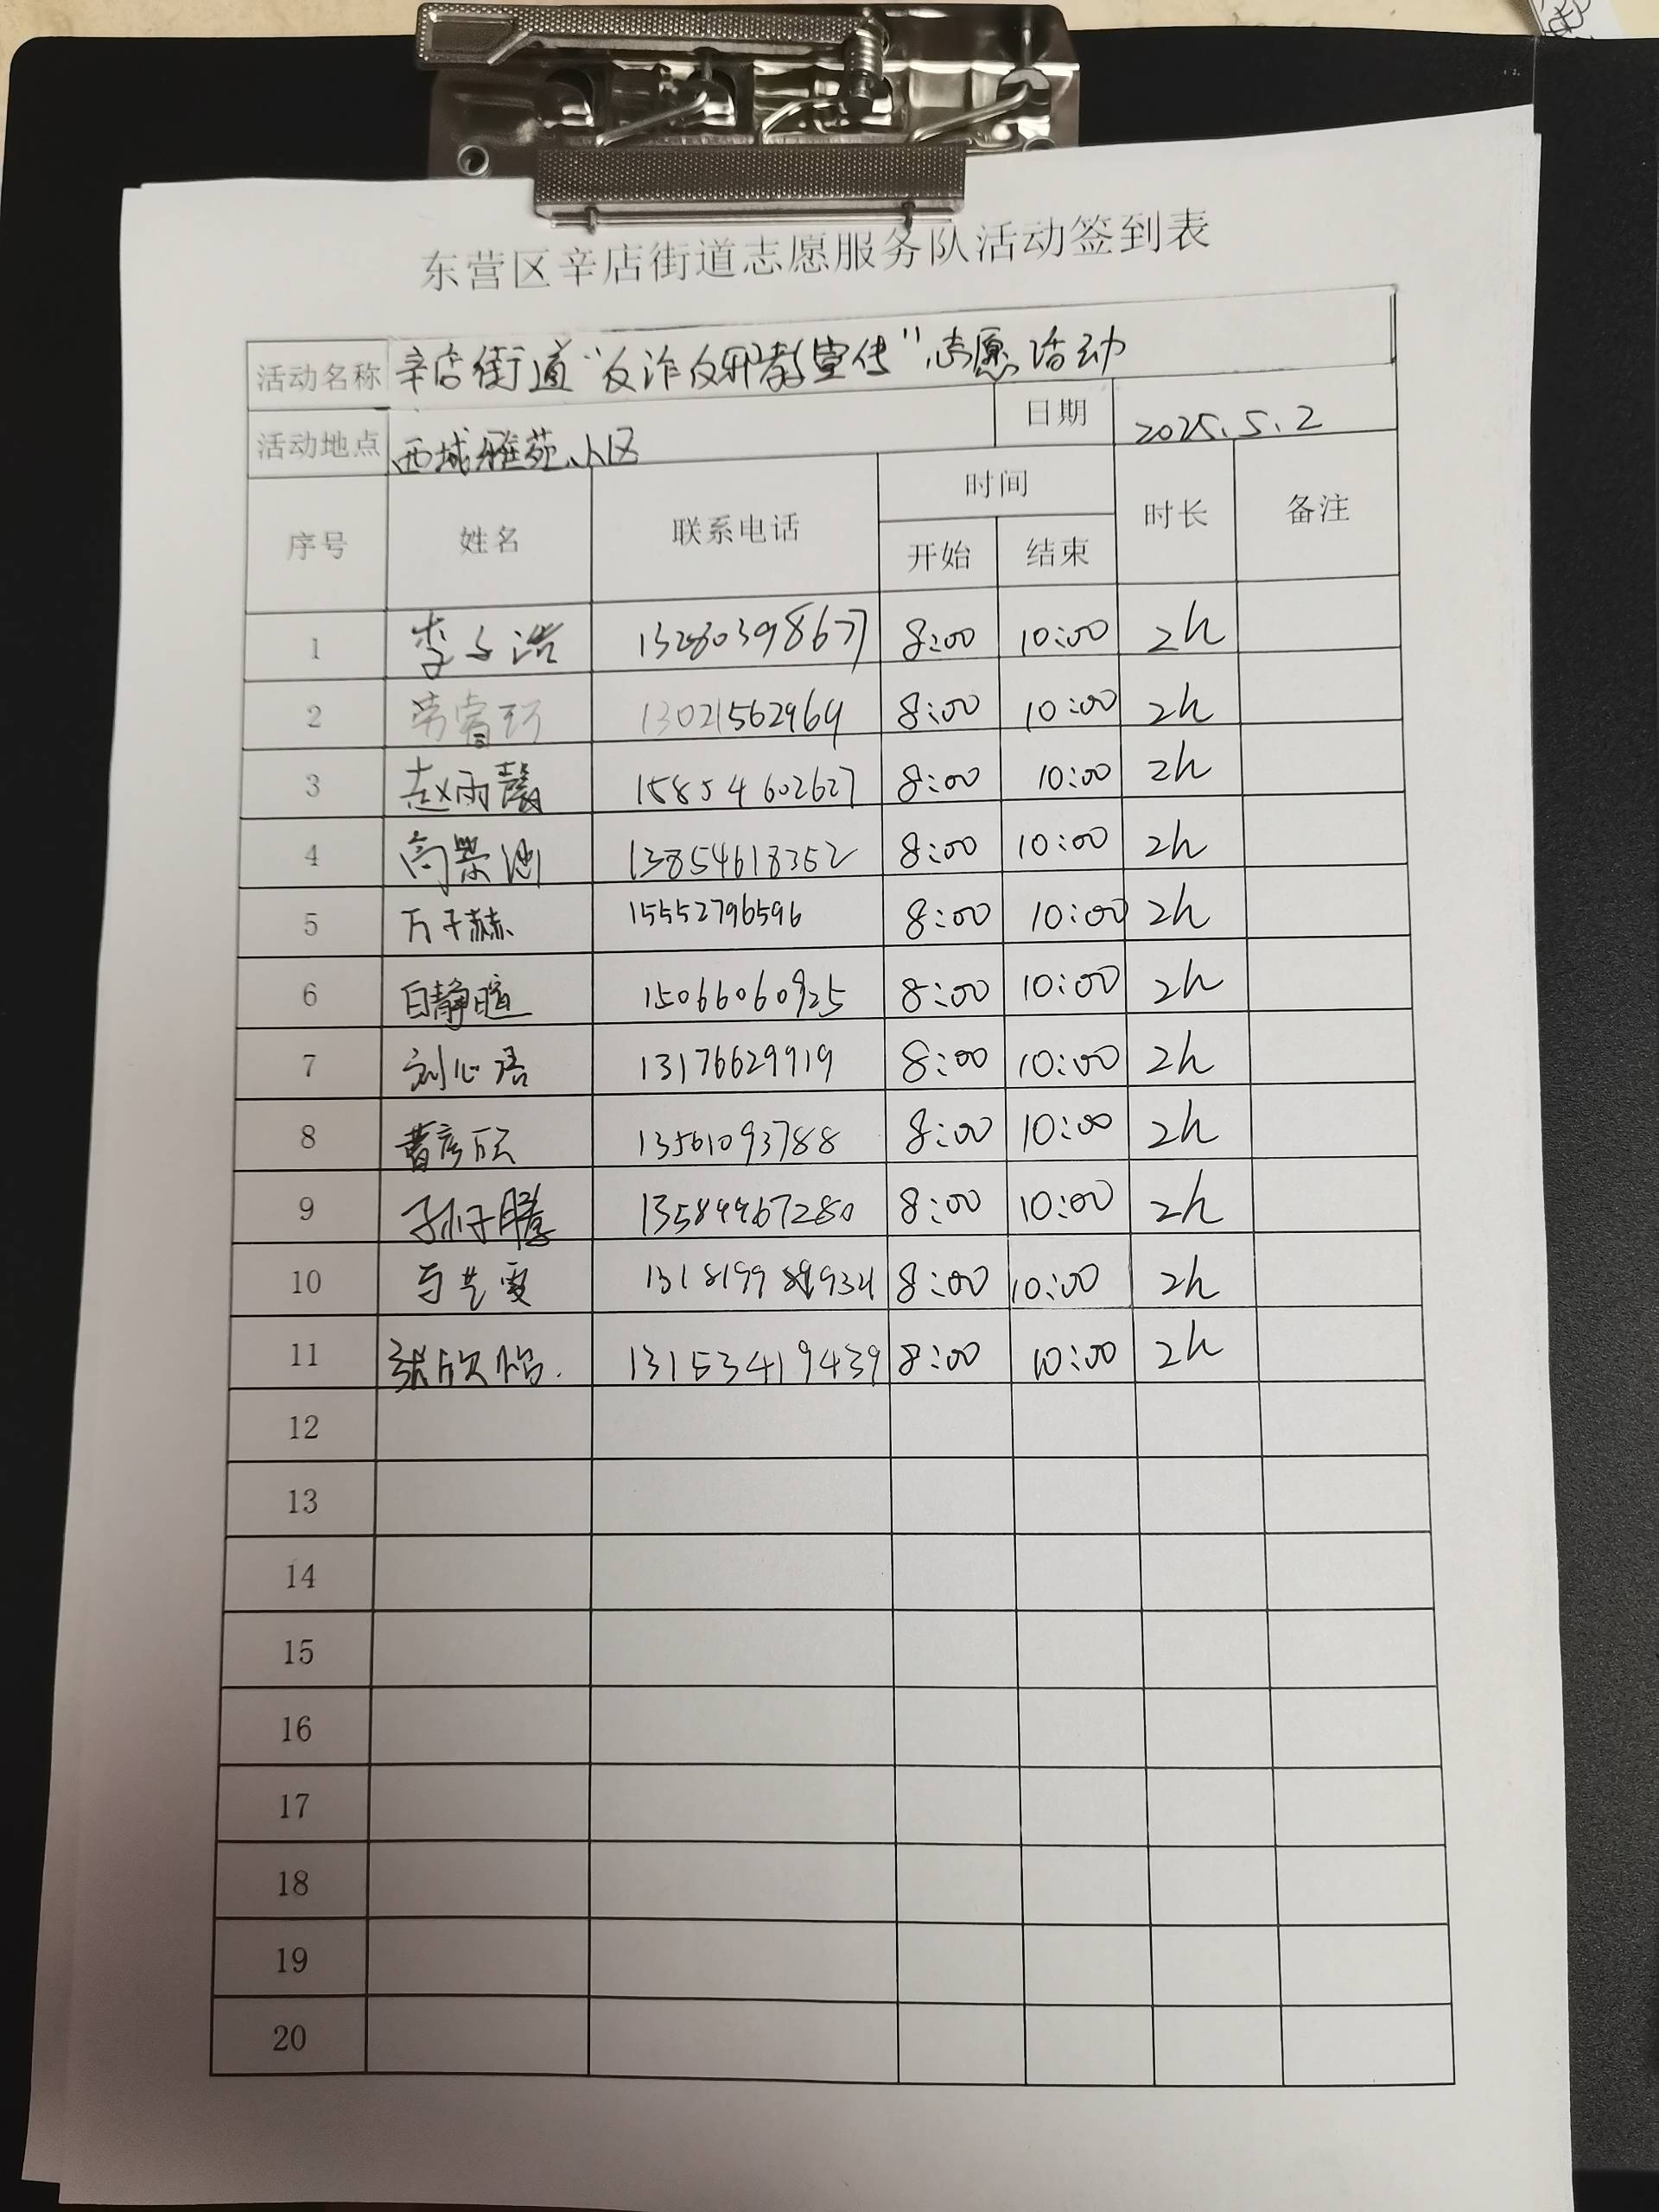 东营区辛店街道志愿服务队活动签到表
活动名称 辛店街道“反诈反邪教宣传”志愿活动
活动地点 西城雅苑小区 日期 2025.5.2
序号 姓名 联系电话 时间 时长 备注
开始 结束
1 李子浩 13280398677 8:00 10:00 2h
2 13021562969 8:00 10:00 2h
3 赵雨馨 15854602627 8:00 10:00 2h
4 高 13854618352 8:00 10:00 2h
5 万子赫 15552796596 8:00 10:00 2h
6 白静暄 15066060925 8:00 10:00 2h
7 刘心语 13176629919 8:00 10:00 2h
8 曹彦欣 13561093788 8:00 10:00 2h
9 孙子腾 13589967280 8:00 10:00 2h
10 8:00 10:00 2h
11 张欣怡 13153419439 8:00 10:00 2h
12
13
14
15
16
17
18
19
20